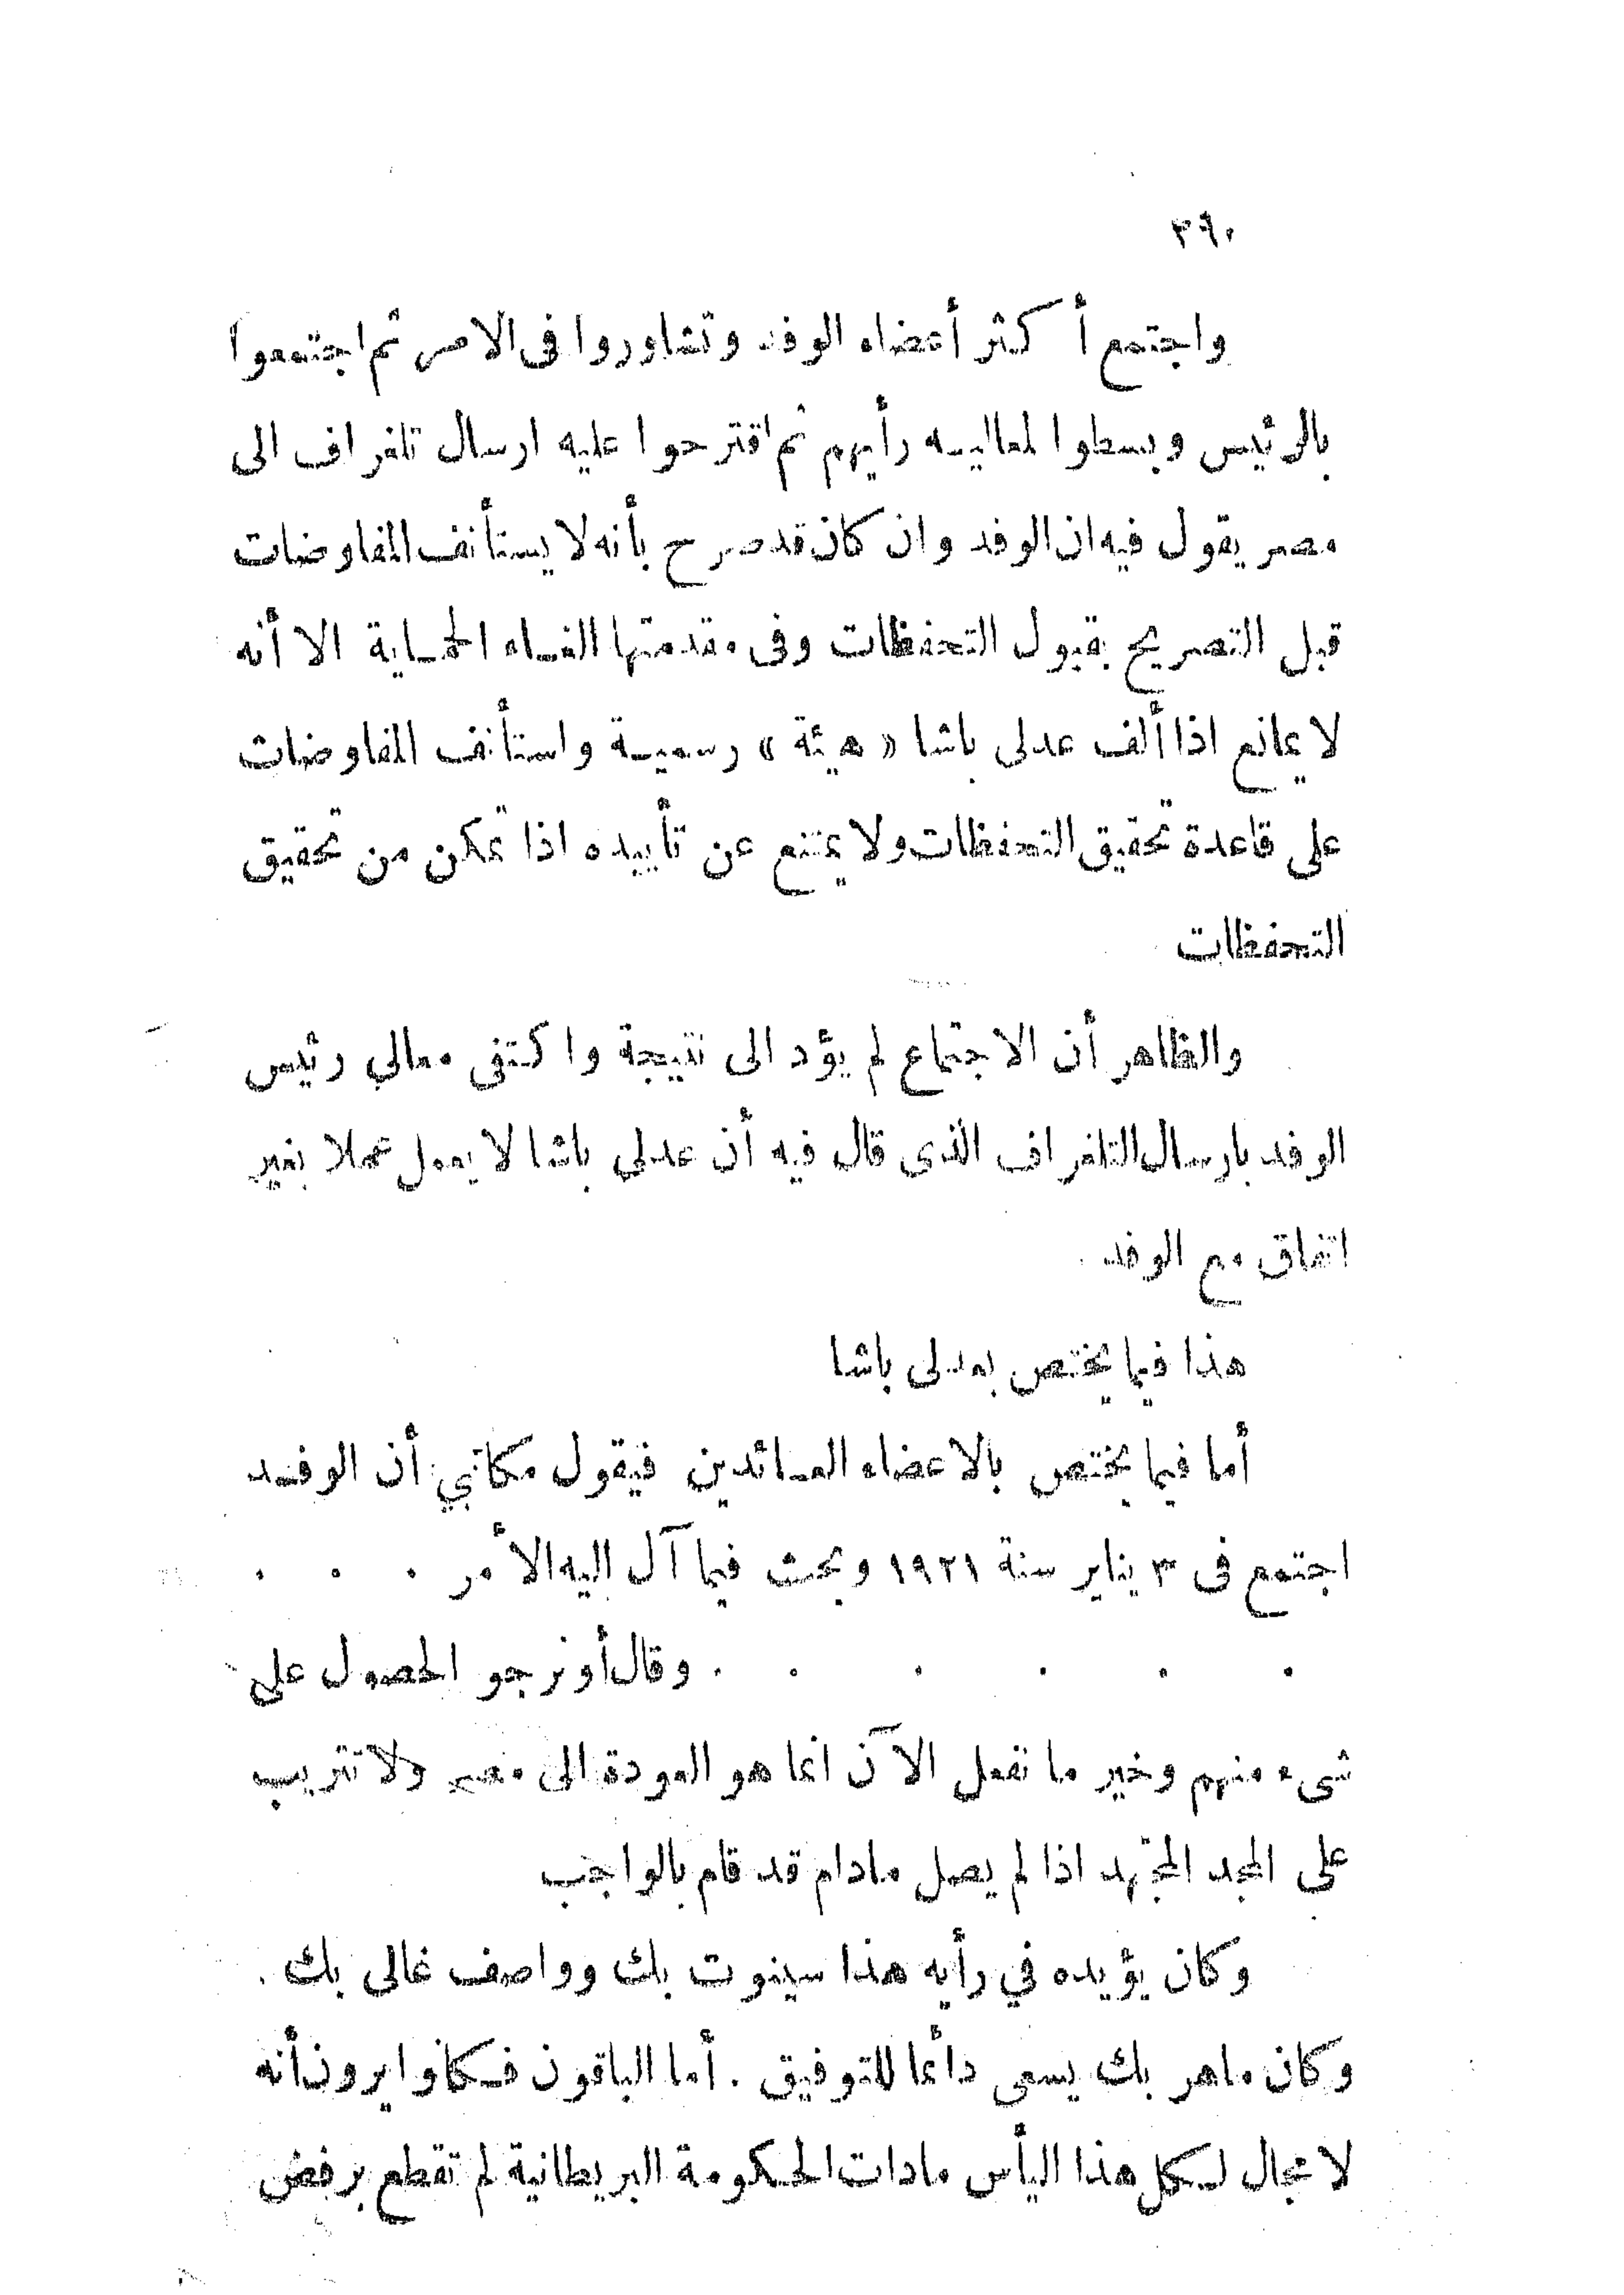 ٣٩٠
واجتمع أكثر أعضاء الوفد وتشاوروا فى الامر ثم اجتمعوا
بالرئيس وبسطوا لمعاليه رأيهم ثم اقترحوا عليه ارسال تلغراف الى
مصر يقول فيه ان الوفد وان كان قد صرح بأنه لا يستأنف المفاوضات
قبل التصريح بقبول التحفظات وفى مقدمتها الغاء الحماية الا أنه
لا يمانع اذا ألف عدلى باشا « هيئة » رسمية واستأنف المفاوضات
على قاعدة تحقيق التحفظات ولا يمتنع عن تأييده اذا تمكن من تحقيق
التحفظات
والظاهر أن الاجتماع لم يؤد الى نتيجة واكتفى معالي رئيس
الوفد بارسال التلغراف الذى قال فيه أن عدلى باشا لا يعمل عملا بغير
اتفاق مع الوفد
هذا فيما يختص بعدلى باشا
أما فيما يختص بالاعضاء العائدين فيقول مكاتبي أن الوفد
اجتمع فى ٣ يناير سنة ١٩٢١ وبحث فيما آل اليه الأمر . . .
. . . . . . وقال أو نرجو الحصول على
شىء منهم وخير ما نفعل الآن انما هو العودة الى مصر ولا تثريب
على المجد المجتهد اذا لم يصل مادام قد قام بالواجب
وكان يؤيده في رأيه هذا سينوت بك وواصف غالى بك .
وكان ماهر بك يسعى دائما للتوفيق . أما الباقون فكانوا يرون أنه
لا مجال لكل هذا اليأس مادات الحكومة البريطانية لم تقطع برفض